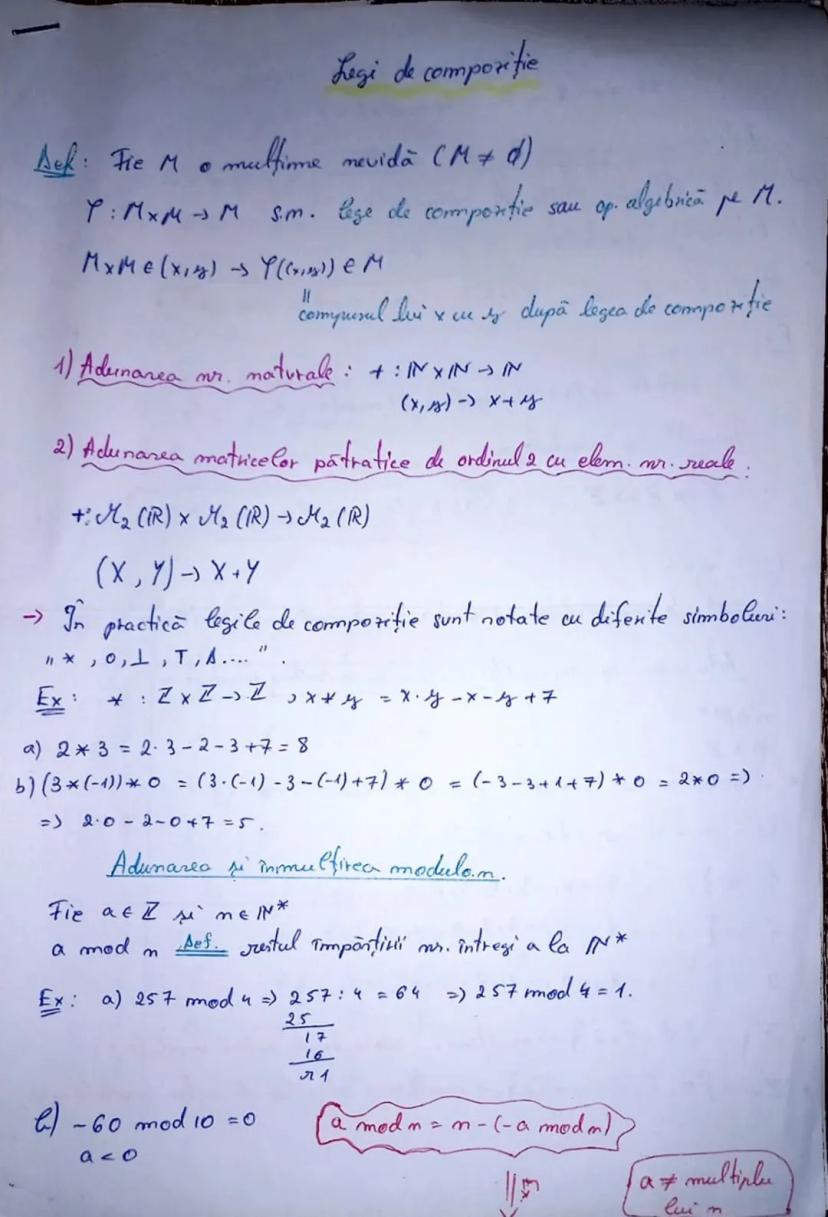 Legi de compoziție
Def: Fie M o mulțime nevidă (M ≠ ∅)
φ : M×M → M s.m. lege de compoziție sau op. algebrică pe M.
M×M ∈ (x,y) → φ((x,y)) ∈ M
"
compusul lui x cu y după legea de compoziție
1) Adunarea nr. naturale : + : ℕ×ℕ → ℕ
(x,y) → x+y
2) Adunarea matricelor pătratice de ordinul 2 cu elem. nr. reale.
+: M₂(ℝ) × M₂(ℝ) → M₂(ℝ)
(X, Y) → X+Y
→ În practică legile de compoziție sunt notate cu diferite simboluri:
„ *, o, ⊥, T, Δ.... ".
Ex: * : ℤ×ℤ → ℤ , x*y = x·y - x - y + 7
a) 2*3 = 2·3 - 2 - 3 + 7 = 8
b) (3*(-1))*0 = (3·(-1) - 3 - (-1) + 7) * 0 = (-3-3+1+7) * 0 = 2*0 =>
=> 2·0 - 2 - 0 + 7 = 5.
Adunarea și înmulțirea modulo n.
Fie a ∈ ℤ și n ∈ ℕ*
a mod n Def. restul împărțirii nr. întregi a la ℕ*
Ex: a) 257 mod 4 => 257 : 4 = 64 => 257 mod 4 = 1.
25
17
16
r1
b) -60 mod 10 = 0 a mod n = n - (-a mod n)
a < 0
Ex
a ≠ multiplu
lui n